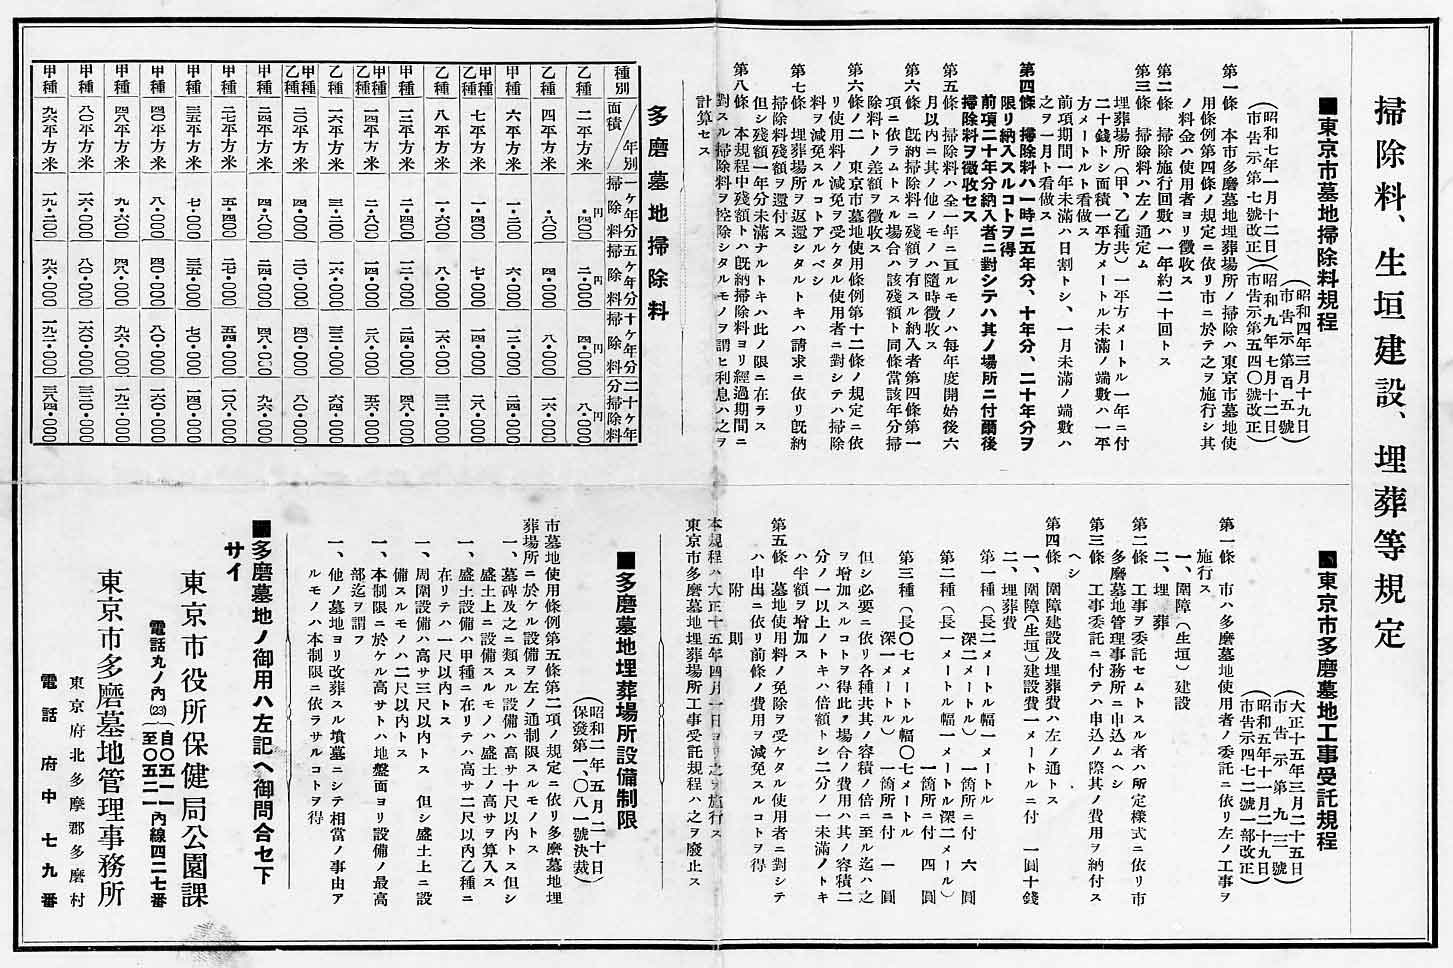 掃除料、生垣建設、埋葬等規定
■東京市墓地掃除料規程
（昭和四年三月十九日）
（市告示第百五號）
（昭和七年一月十二日）（昭和九年七月十二日）
（市告示第七號改正）（市告示第五四〇號改正）
第一條　本市多磨墓地埋葬場所ノ掃除ハ東京市墓地使
用條例第四條ノ規定ニ依リ市ニ於テ之ヲ施行シ其
ノ料金ハ使用者ヨリ徴收ス
第二條　掃除施行回數ハ一年約二十回トス
第三條　掃除料ハ左ノ通定ム
埋葬場所（甲、乙種共）一平方メートル一年ニ付
二十錢トシ面積一平方メートル未滿ノ端數ハ一平
方メートルト看做ス
前項期間一年未滿ハ日割トシ、一月未滿ノ端數ハ
之ヲ一月ト看做ス
第四條　掃除料ハ一時ニ五年分、十年分、二十年分ヲ
限リ納入スルコトヲ得
前項二十年分納入者ニ對シテハ其ノ場所ニ付爾後
掃除料ヲ徴收セス
第五條　掃除料ハ全一年ニ亘ルモノハ毎年度開始後六
月以内ニ其ノ他ノモノハ隨時徴收ス
第六條　既納掃除料ニ殘額ヲ有スル納入者第四條第一
項ニ依ラムトスル場合ハ該殘額ト同條當該年分掃
除料トノ差額ヲ徴收ス
第六條ノ二　東京市墓地使用條例第十二條ノ規定ニ依
リ使用料ノ減免ヲ受ケタル使用者ニ對シテハ掃除
料ヲ減免スルコトアルベシ
第七條　埋葬場所ヲ返還シタルトキハ請求ニ依リ既納
掃除料殘額ヲ還付ス
但シ殘額一年分未滿ナルトキハ此ノ限ニ在ラス
第八條　本規程中殘額トハ既納掃除料ヨリ經過期間ニ
對スル掃除料ヲ控除シタルモノヲ謂ヒ利息ハ之ヲ
計算セス
多磨墓地掃除料
種別　面積／年別　一ヶ年分掃除料　五ヶ年分掃除料　十ヶ年分掃除料　二十ヶ年分掃除料
乙種　二平方米　・四〇〇円　二・〇〇〇円　四・〇〇〇円　八・〇〇〇円
乙種　四平方米　・八〇〇　四・〇〇〇　八・〇〇〇　一六・〇〇〇
甲種　六平方米　一・二〇〇　六・〇〇〇　一二・〇〇〇　二四・〇〇〇
甲種乙種　七平方米　一・四〇〇　七・〇〇〇　一四・〇〇〇　二八・〇〇〇
乙種　八平方米　一・六〇〇　八・〇〇〇　一六・〇〇〇　三二・〇〇〇
甲種　一二平方米　二・四〇〇　一二・〇〇〇　二四・〇〇〇　四八・〇〇〇
甲種乙種　一四平方米　二・八〇〇　一四・〇〇〇　二八・〇〇〇　五六・〇〇〇
乙種　一六平方米　三・二〇〇　一六・〇〇〇　三二・〇〇〇　六四・〇〇〇
甲種乙種　二〇平方米　四・〇〇〇　二〇・〇〇〇　四〇・〇〇〇　八〇・〇〇〇
甲種　二四平方米　四・八〇〇　二四・〇〇〇　四八・〇〇〇　九六・〇〇〇
甲種　二七平方米　五・四〇〇　二七・〇〇〇　五四・〇〇〇　一〇八・〇〇〇
甲種　三五平方米　七・〇〇〇　三五・〇〇〇　七〇・〇〇〇　一四〇・〇〇〇
甲種　四〇平方米　八・〇〇〇　四〇・〇〇〇　八〇・〇〇〇　一六〇・〇〇〇
甲種　四八平方米　九・六〇〇　四八・〇〇〇　九六・〇〇〇　一九二・〇〇〇
甲種　八〇平方米　一六・〇〇〇　八〇・〇〇〇　一六〇・〇〇〇　三二〇・〇〇〇
甲種　九六平方米　一九・二〇〇　九六・〇〇〇　一九二・〇〇〇　三八四・〇〇〇
■東京市多磨墓地工事受託規程
（大正十五年三月二十五日）
（市告示第九三號）
（昭和五年十一月二十九日）
（市告示四七二號一部改正）
第一條　市ハ多磨墓地使用者ノ委託ニ依リ左ノ工事ヲ
施行ス
一、圍障（生垣）建設
二、埋葬
第二條　工事ヲ委託セムトスル者ハ所定樣式ニ依リ市
多磨墓地管理事務所ニ申込ムヘシ
第三條　工事委託ニ付テハ申込ノ際其ノ費用ヲ納付ス
ヘシ
第四條　圍障建設及埋葬費ハ左ノ通トス
一、圍障（生垣）建設費一メートルニ付　一圓十錢
二、埋葬費
第一種（長二メートル幅一メートル
深二メートル）　一箇所ニ付　六圓
第二種（長一メートル幅一メートル深二メートル）
一箇所ニ付　四圓
第三種（長〇七メートル幅〇七メートル
深一メートル）　一箇所ニ付　一圓
但シ必要ニ依リ各種共其ノ容積ノ倍ニ至ル迄ハ之
ヲ增加スルコトヲ得此ノ場合ノ費用ハ其ノ容積二
分ノ一以上ノトキハ倍額トシ二分ノ一未滿ノトキ
ハ半額ヲ增加ス
第五條　墓地使用料ノ免除ヲ受ケタル使用者ニ對シテ
ハ申出ニ依リ前條ノ費用ヲ減免スルコトヲ得
附則
本規程ハ大正十五年四月一日ヨリ之ヲ施行ス
東京市多磨墓地埋葬場所工事受託規程ハ之ヲ廢止ス
■多磨墓地埋葬場所設備制限
（昭和二年五月二十日）
（保發第一、〇八一號決裁）
市墓地使用條例第五條第二項ノ規定ニ依リ多磨墓地埋
葬場所ニ於ケル設備ヲ左ノ通制限スルモノトス
一、墓碑及之ニ類スル設備ハ高サ十尺以内トス但シ
盛土上ニ設備スルモノハ盛土ノ高サヲ算入ス
一、盛土設備ハ甲種ニ在リテハ高サ二尺以内乙種ニ
在リテハ一尺以内トス
一、周圍設備ハ高サ三尺以内トス　但シ盛土上ニ設
備スルモノハ二尺以内トス
一、本制限ニ於ケル高サトハ地盤面ヨリ設備ノ最高
部迄ヲ謂フ
一、他ノ墓地ヨリ改葬スル墳墓ニシテ相當ノ事由ア
ルモノハ本制限ニ依ラサルコトヲ得
■多磨墓地ノ御用ハ左記へ御問合セ下
サイ
東京市役所保健局公園課
電話丸ノ内(23)｛自〇五一一　至〇五二一｝内線四二七番
東京府北多摩郡多磨村
東京市多磨墓地管理事務所
電話　府中七九番